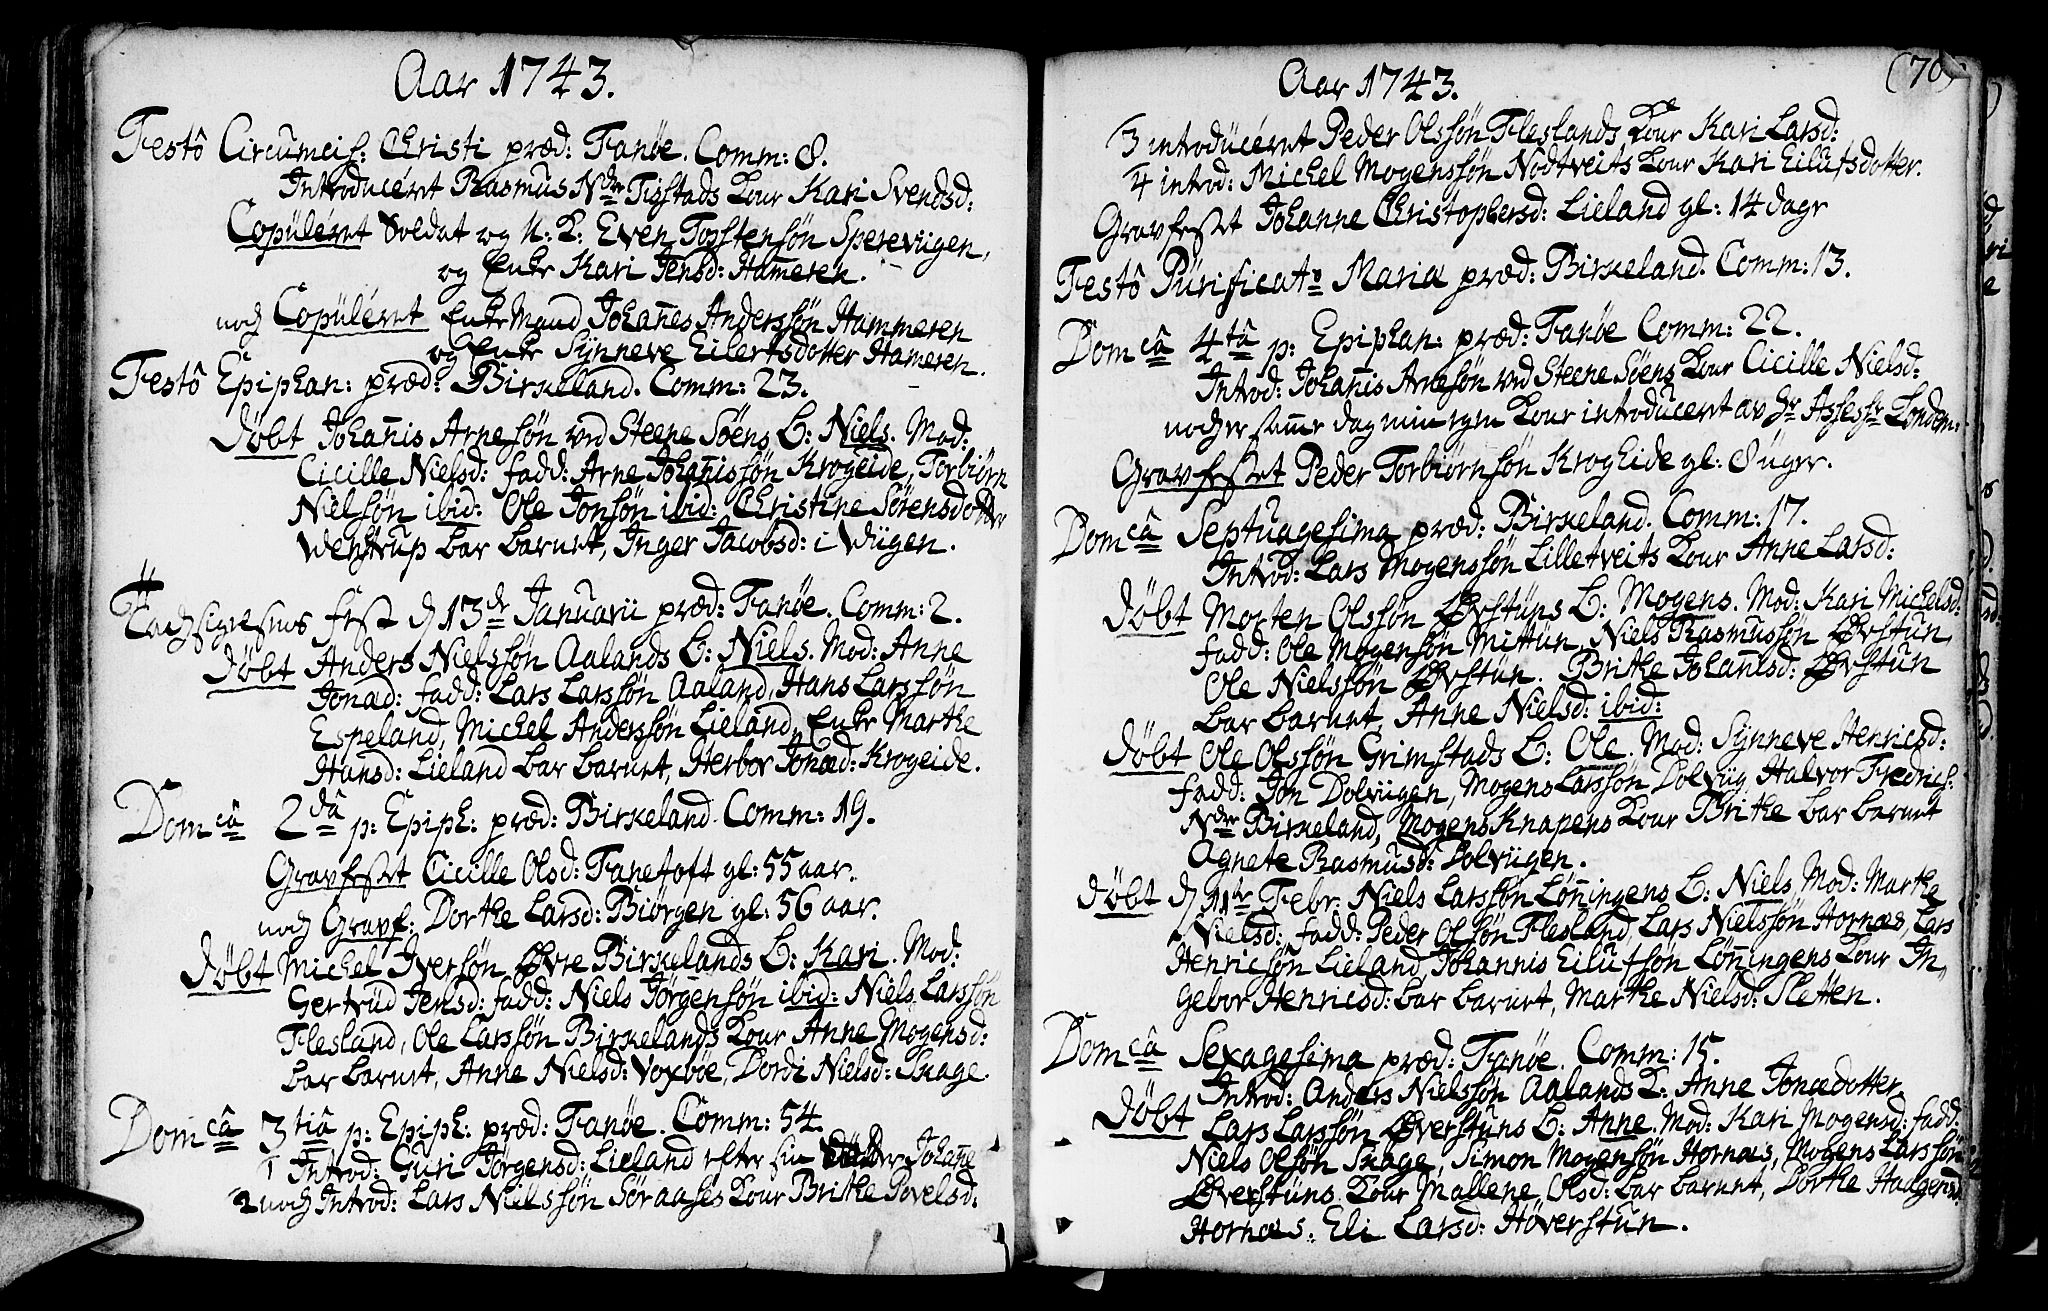 Aar 1743.
Festô Circumcis: Christi præd: Fanøe. Comm: 8.
Introducéret Rasmus Ndre Tistads Kone Kari Svendsd:
Copuléret Soldat og U: K: Even Tostensøn Sperevügen,
og Enke Kari Jensd: Hameren.
noch Copuléret Enke Mand Johanes Anderssøn Hammeren
og Enke Synneve Eilertsdotter Hameren.
Festô Epiphan: præd: Birkeland. Comm: 23.
Døbt Johanis Arnesøn ved Steene Søens B: Niels. Mod:
Cicille Nielsd: fadd: Arne Johanissøn Krogeide, Torbiørn
Nielsøn ibid: Ole Jonsøn ibid: Christine Sørensdotter
Wentrup bar barnet, Inger Jacobsd: i Wügen.
Tachsigelses fest d 13de Januarii præd: Fanøe. Comm: 2.
Døbt Anders Nielssøn Aalands B: Niels. Mod: Anne
Jonæd: fadd: Lars Larssøn Aaland, Hans Larssøn
Espeland, Michel Anderssøn Lieland, Enke Marthe
Hansd: Lieland bar barnet, Herbor Jonæd: Krogeide.
Domcâ 2dâ p: Epiph: præd: Birkeland. Comm: 19.
Gravfestet Cicille Olsd: Fanetoft gl: 55 aar.
noch Gravf: Dorthe Larsd: Biørgen gl: 56 aar.
Døbt Michel Iversøn Øvre Birkelands B: Kari. Mod:
Gertrüd Jensd: fadd: Niels Jørgensøn ibid: Niels Larssøn
Flesland, Ole Larssøn Birkelands Kone Anne Mogensd:
bar barnet, Anne Nielsd: Voxbøe, Dordi Nielsd: Skage.
Domcâ 3tiâ p: Epiph: præd: Fanøe. Comm: 54.
1 Introd: Guri Jørgensd: Lieland efter sin Johane
2 noch Introd: Lars Nielssøn Søraases Kone Brithe Povelsd:
Aar 1743.
(70)
3 introducéret Peder Olssøn Fleslands Kone Kari Larsd:
4 introd: Michel Mogenssøn Nodtveits Kone Kari Eilufsdotter.
Gravfestet Johanne Christophersd: Lieland gl: 14 dage
Festô Pürificat: Mariæ præd: Birkeland. Comm: 13.
Domcâ 4tâ p: Epiphan: præd: Fanøe Comm: 22.
Introd: Johanis Arnesøn ved Steene Søens Kone Cicille Nielsd:
noch er same dag min egen Kone introduceret av Hr Assessr Londem:
Gravfestet Peder Torbiørnsøn Krogheide gl: 8 üger.
Domcâ Septuagesima præd: Birkeland. Comm: 17.
Introd: Lars Mogenssøn Lilletveits Kone Anne Larsd:
Døbt Morten Olssøn Øvstüns B: Mogens. Mod: Kari Michelsd:
fadd: Ole Mogensøn Mittun, Niels Rasmussøn Øvstun,
Ole Nielssøn Øvstün. Brithe Johanisd: Øvstün
bar barnet, Anne Nielsd: ibid:
Døbt Ole Olssøn Grimstads B: Ole. Mod: Synneve Henricsd:
fadd: Jon Dolviigen, Mogens Larssøn Dolviig, Halvor Fredrics:
Ndre Birkeland, Mogens Knapens Kone Brithe bar barnet
Agnete Rasmusd: Dolviigen.
Døbt d 11te Febr. Niels Larssøn Lønningens B: Niels. Mod: Marthe
Nielsd: fadd: Peder Olssøn Flesland, Lars Nielssøn Hornæs, Lars
Henricsøn Lieland, Johannis Eilufsøn Lønningens Kone In-
gebor Henricsd: bar barnet, Marthe Nielsd: Sletten.
Domcâ Sexagesima præd: Fanøe. Comm: 15.
Introd: Anders Nielssøn Aalands K: Anne Jonædotter
Døbt Lars Larssøn Øverstüns B: Anne. Mod: Kari Mogensd: fadd:
Niels Olsøn Skage, Simon Mogensøn Hornæs, Mogens Larssøn
Øverstüns Kone Mallene Olsd: bar barnet, Dorthe Haagensd:
Hornæs. Eli Larsd: Høverstun.